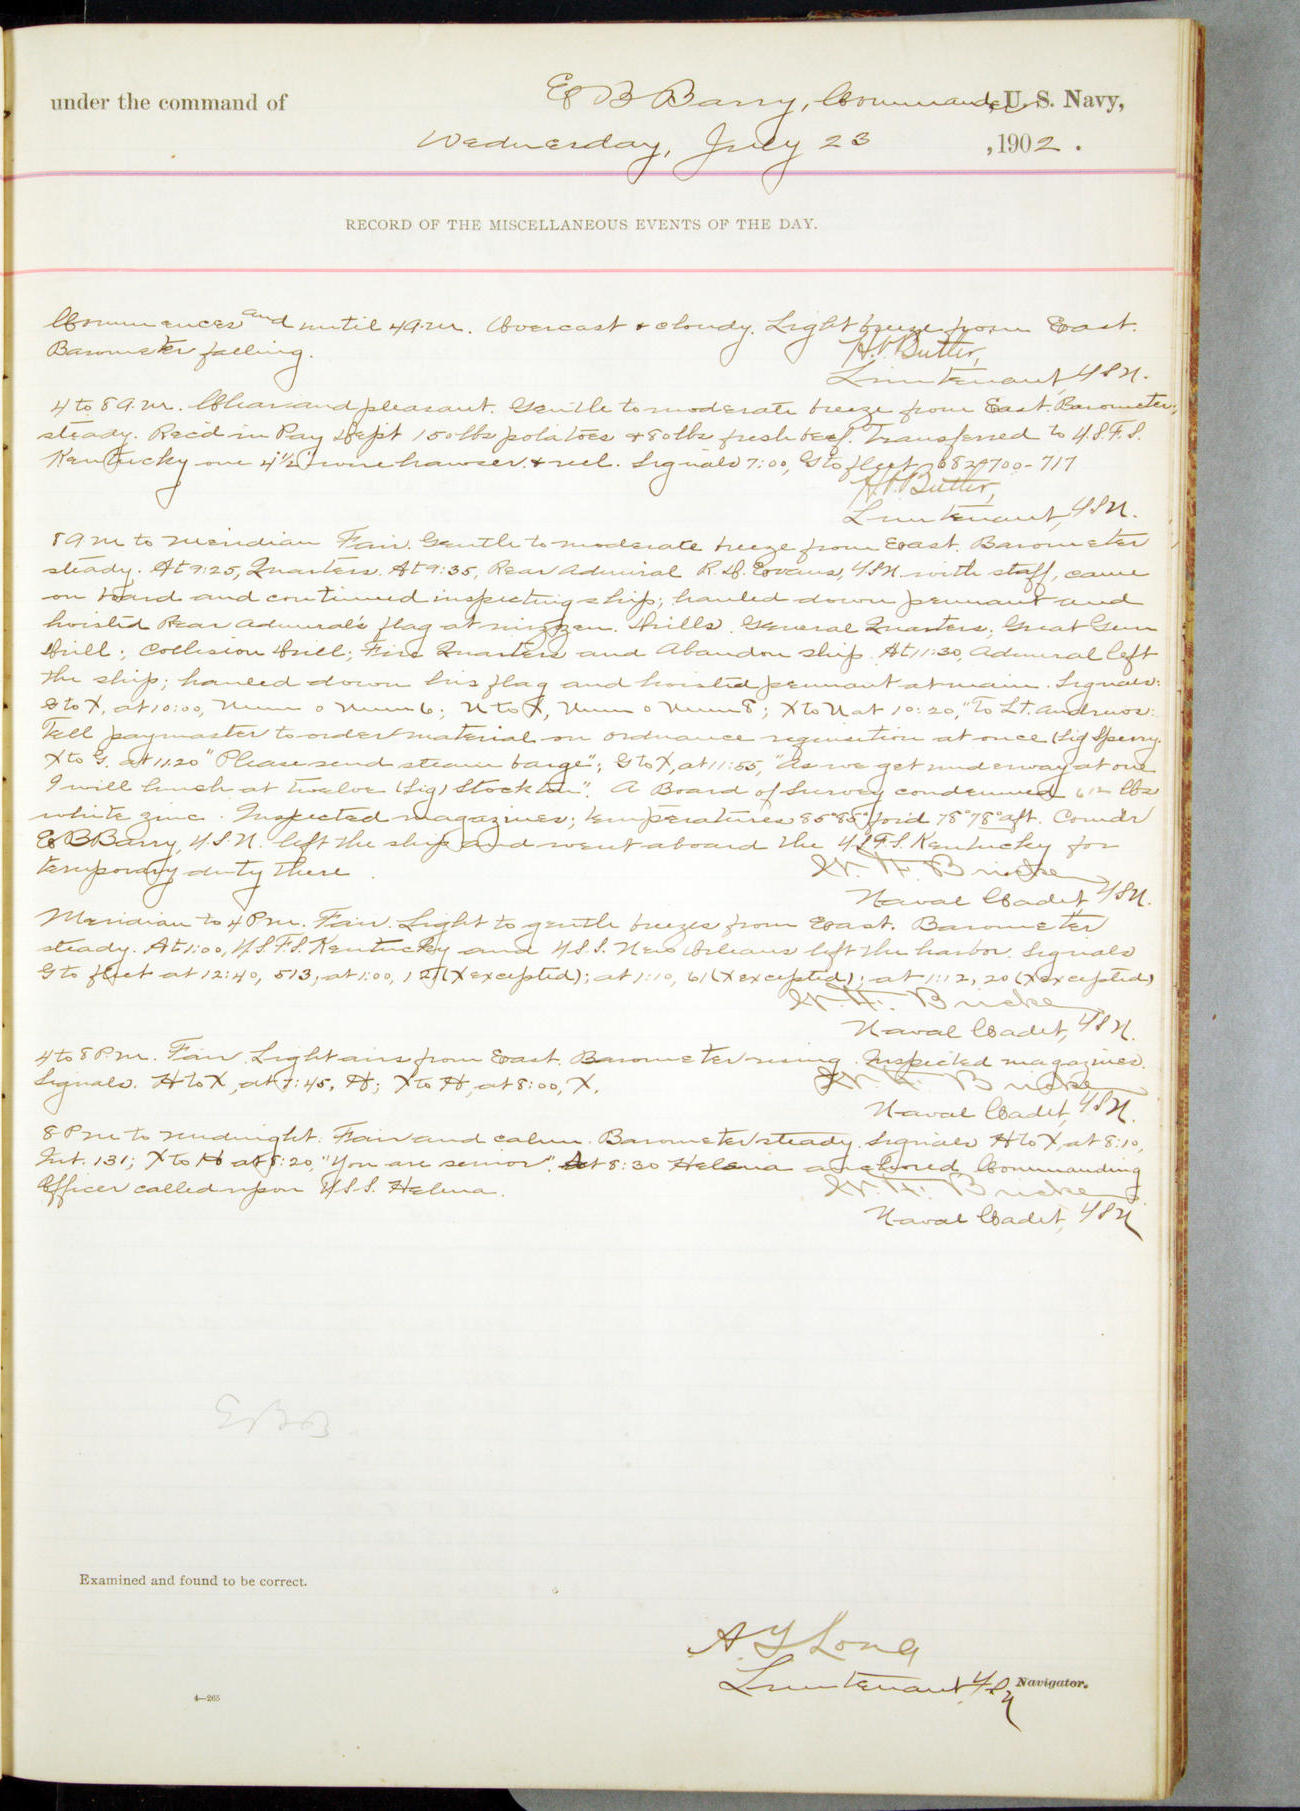 under the command of E B Barry, Commander, U. S. Navy,
Wednesday, July 23, 1902.
RECORD OF THE MISCELLANEOUS EVENTS OF THE DAY.
Commences and until 4 a.m. Overcast & cloudy. Light breeze from East.
Barometer falling.
H.V. Butler,
Lieutenant, U.S.N.
4 to 8 a.m. Clear and pleasant. Gentle to moderate breeze from East. Barometer
steady. Rec'd in Pay Dep't 150 lbs potatoes & 80 lbs fresh beef. Transferred to U.S.F.S.
Kentucky one 4½" wire hawser & reel. Signals 7:00, G to fleet 682-700-717
H.V. Butler,
Lieutenant, U.S.N.
8 a m to meridian Fair. Gentle to moderate breeze from East. Barometer
steady. At 9:25, Quarters. At 9:35, Rear Admiral R. D. Evans, U.S.N. with staff, came
on board and continued inspecting ship; hauled down pennant and
hoisted Rear Admiral's flag at mizzen. Drills. General Quarters; Great Gun
Drill; Collision Drill; Fire Quarters and Abandon ship. At 11:30, Admiral left
the ship; hauled down his flag and hoisted pennant at main. Signals:
G to X, at 10:00, Num 0 Num 6; N to X, Num 0 Num 8; X to N at 10:20, "To Lt. Andrews:
Tell paymaster to order material on ordnance requisition at once (Sig) Sperry.
X to G. at 11:20 "Please send steam barge"; G to X, at 11:55, "As we get underway at one
I will lunch at twelve (Sig) Stockton". A Board of Survey condemned 612 lbs
white zinc. Inspected magazines; temperatures 85° 85° for'd 78° 78° aft. Comd'r
E B Barry, U.S.N. left the ship and went aboard the U.S.F.S. Kentucky for
temporary duty there.
Naval Cadet, U.S.N.
Meridian to 4 P.m. Fair. Light to gentle breezes from East. Barometer
steady. At 1:00, U.S.F.S. Kentucky and U.S.S. New Orleans left the harbor. Signals
G to fleet at 12:40, 513; at 1:00, (X excepted); at 1:10, 61 (X excepted); at 1:12, 20 (X excepted)
Naval Cadet, U.S.N.
4 to 8 P.m. Fair. Light airs from East. Barometer rising. Inspected magazines.
Signals. H to X, at 7:45, H; X to H, at 8:00, X.
Naval Cadet, U.S.N.
8 P m to midnight: Fair and calm. Barometer steady. Signals H to X, at 8:10,
Int. 131; X to H at 8:20, "You are senior". At 8:30 Helena anchored. Commanding
Officer called upon U.S.S. Helena.
Naval Cadet, U.S.N.
EBB
Examined and found to be correct.
A T Long
Lieutenant, U.S.N. Navigator.
4—265